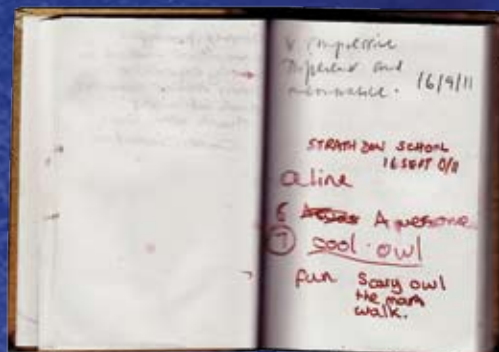 V. impressive
Different and
memorable. 16/9/11
STRATHDON SCHOOL
16 SEPT 0/11
aline
6 Awesome
7 cool owl
fun Scary owl
the man
walk.